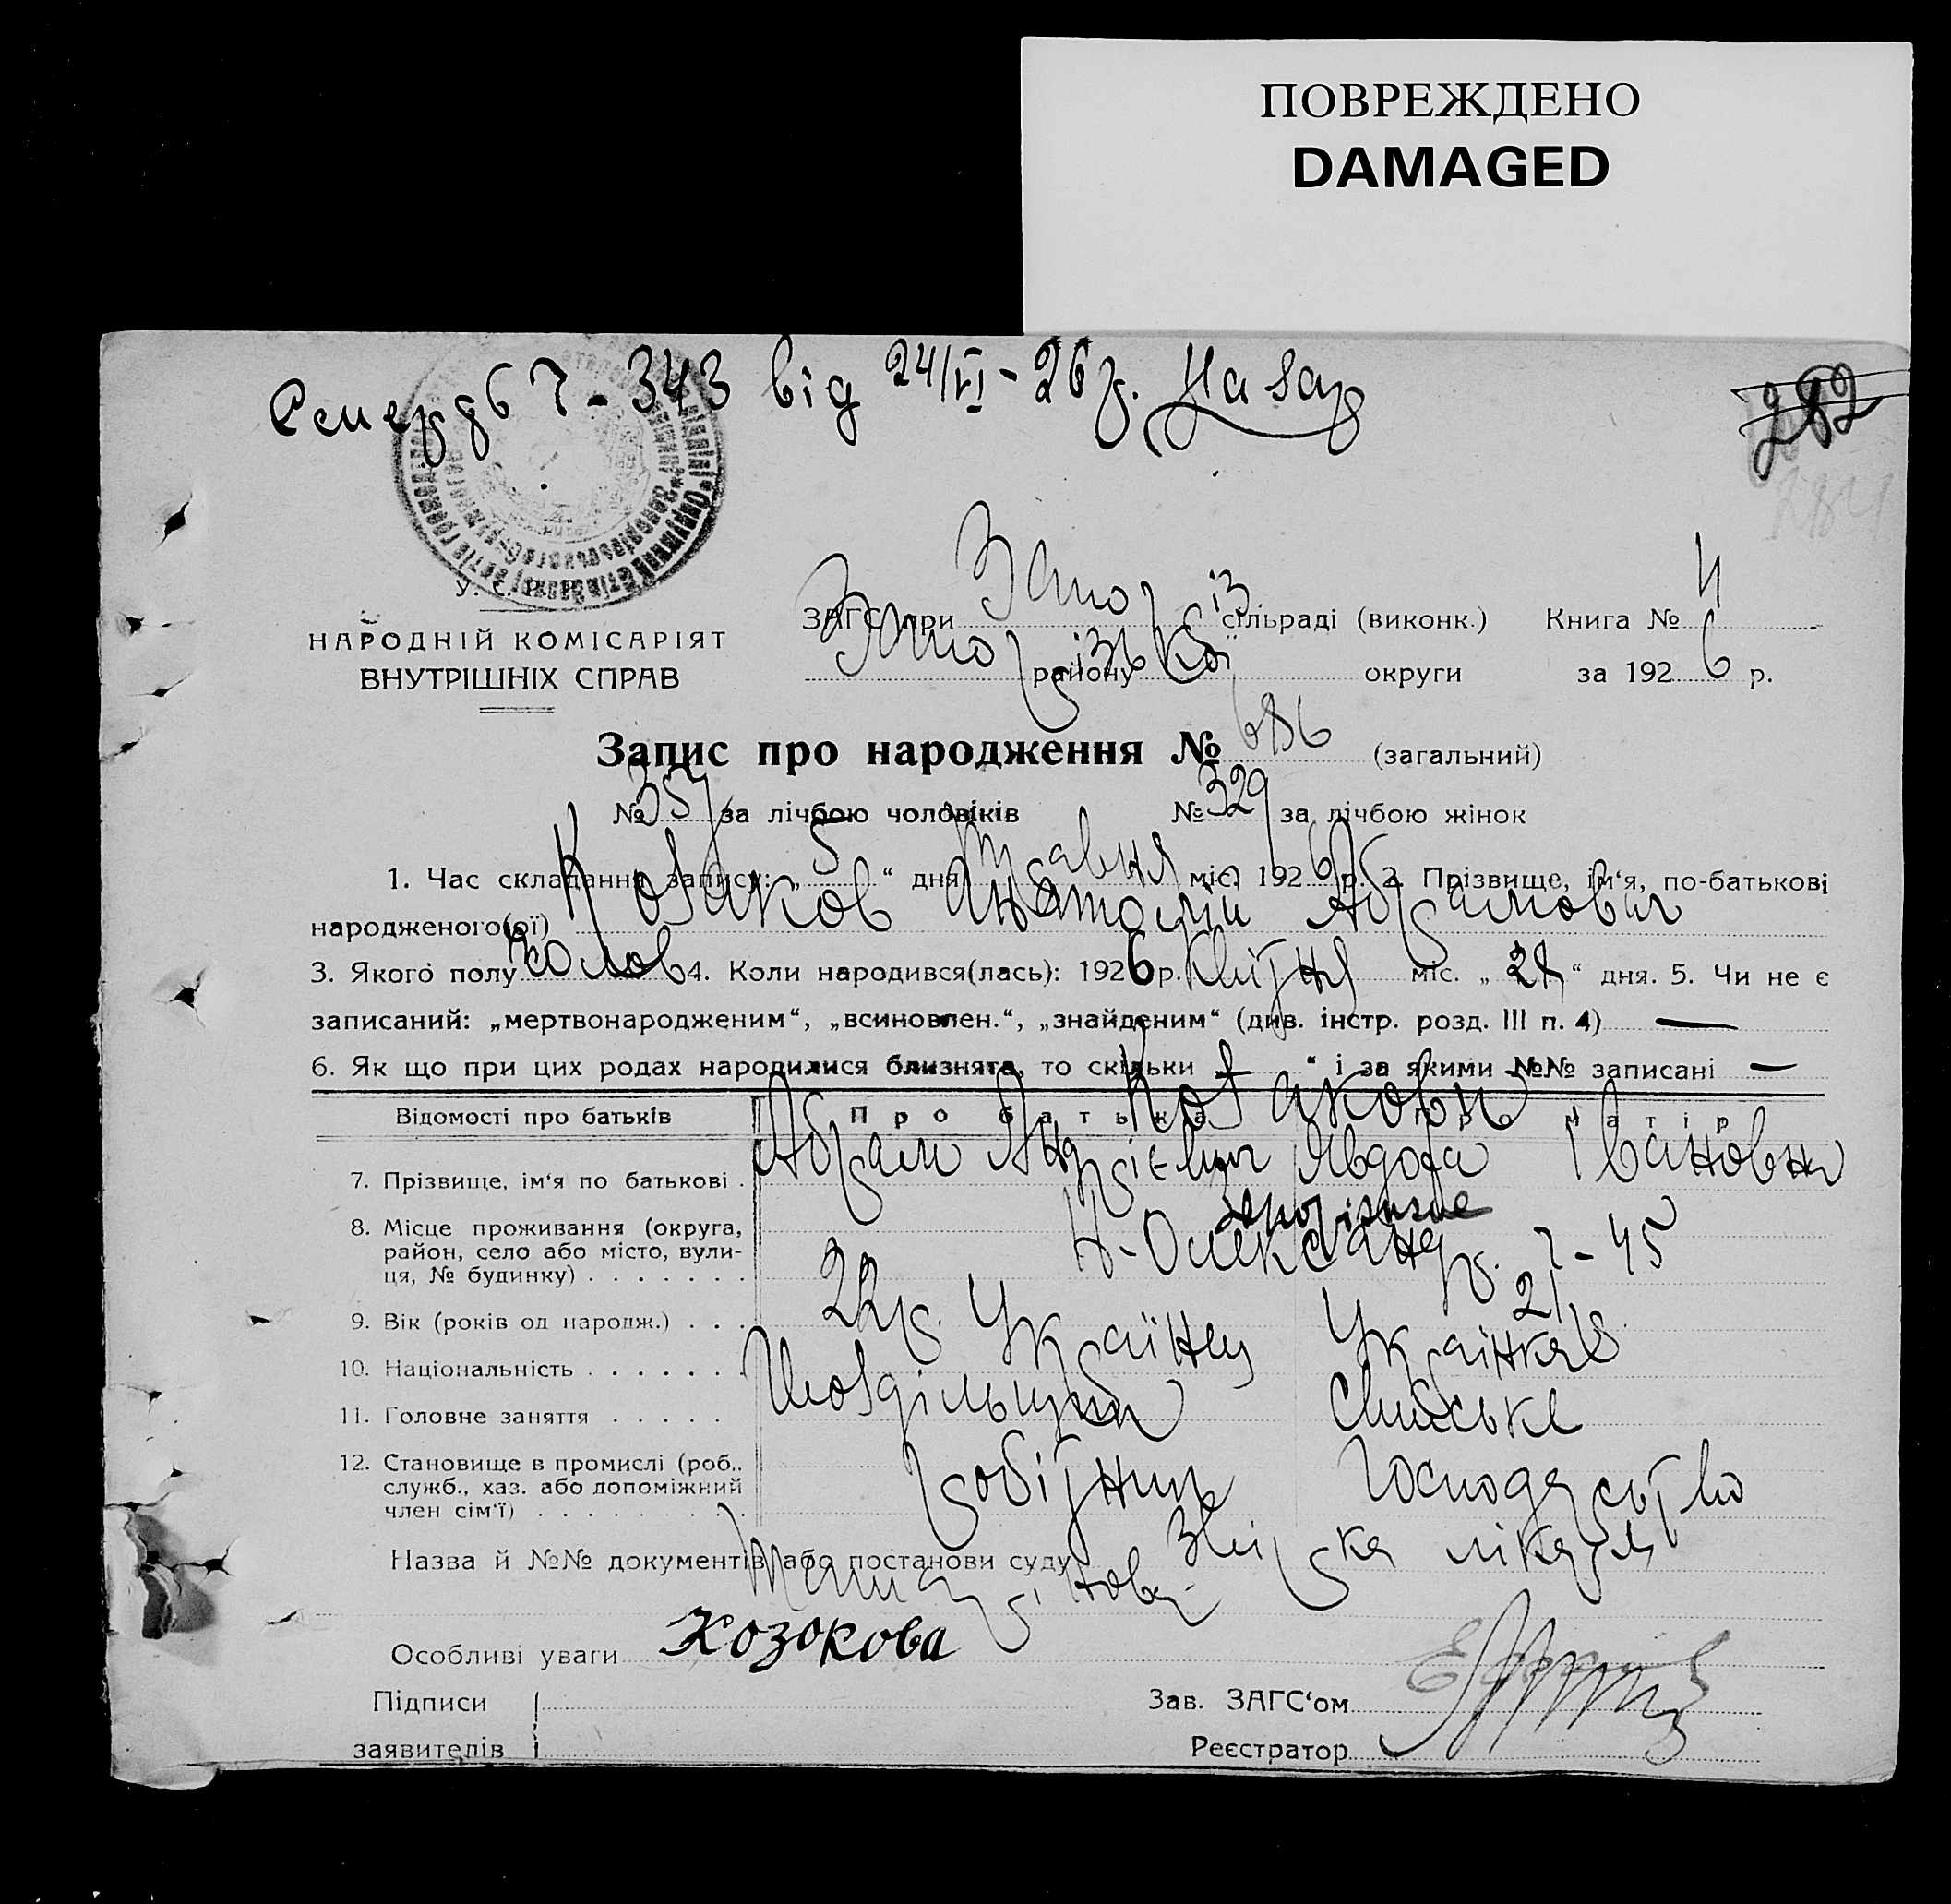 ПОВРЕЖДЕНО
DAMAGED
343 від 24/VI-26р.
282
У.С.Р.Р.
НАРОДНІЙ КОМІСАРІЯТ
ВНУТРІШНІХ СПРАВ
ЗАГС при Запоріз. сільраді (виконк.) Книга № 4
Запорізької району округи за 1926 р.
Запис про народження № 686 (загальний)
№ 357 за лічбою чоловіків № 329 за лічбою жінок
1. Час складання запису: „5“ дня травня міс. 1926 р. 2. Прізвище, ім‘я, по-батькові
народженого(ої) Козаков Анатолій Абрамович
3. Якого полу чолов 4. Коли народився(лась): 1926 р. квітня міс. „28“ дня. 5. Чи не є
записаний: „мертвонародженим“, „всиновлен.“, „знайденим“ (див. інстр. розд. III п. 4) —
6. Як що при цих родах народилися близнята, то скільки — “ і за якими №№ записані —
Відомості про батьків Про батька Про матір
Козакови
7. Прізвище, ім‘я по батькові . Абрам Андрієвич Явдоха Івановна
Запоріжжє
8. Місце проживання (округа,
район, село або місто, вули-
ця, № будинку) . . . . . . . Н-Олександр. 45
9. Вік (років од народж.) . . . 22р. 21р.
10. Національність . . . . . . . Українец Українка
11. Головне заняття . . . . . Сільське
12. Становище в промислі (роб.,
служб., хаз. або допоміжний
член сім‘ї) . . . . . . . . . робітник господарство
Назва й №№ документів або постанови суду Звістка лікаря
Особливі уваги Козокова
Підписи
заявителів
Зав. ЗАГС‘ом
Реєстратор